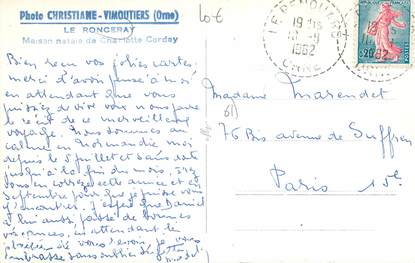 Photo CHRISTIANE - VIMOUTIERS (Orne)
LE RONCERAY
Maison natale de Charlotte Corday
10€
19 H15
1962
ORNE
0,20
Bien reçu vos jolies cartes
merci d'avoir pensé à moi
en attendant que vous
puissiez de vive voix nous faire
le récit de ce merveilleux
voyage. Nous sommes au
calme en Normandie moi
depuis le 5 juillet et sans doute
jusqu'à la fin du mois.
en Corrèze cette année et en
Septembre
J'espère que Daniel
a lui aussi passé de bonnes
vacances, en attendant le
plaisir de vous revoir, je vous
embrasse sans oublier
Madame Marendet
61
76 Bis avenue de Suffren
Paris 15e